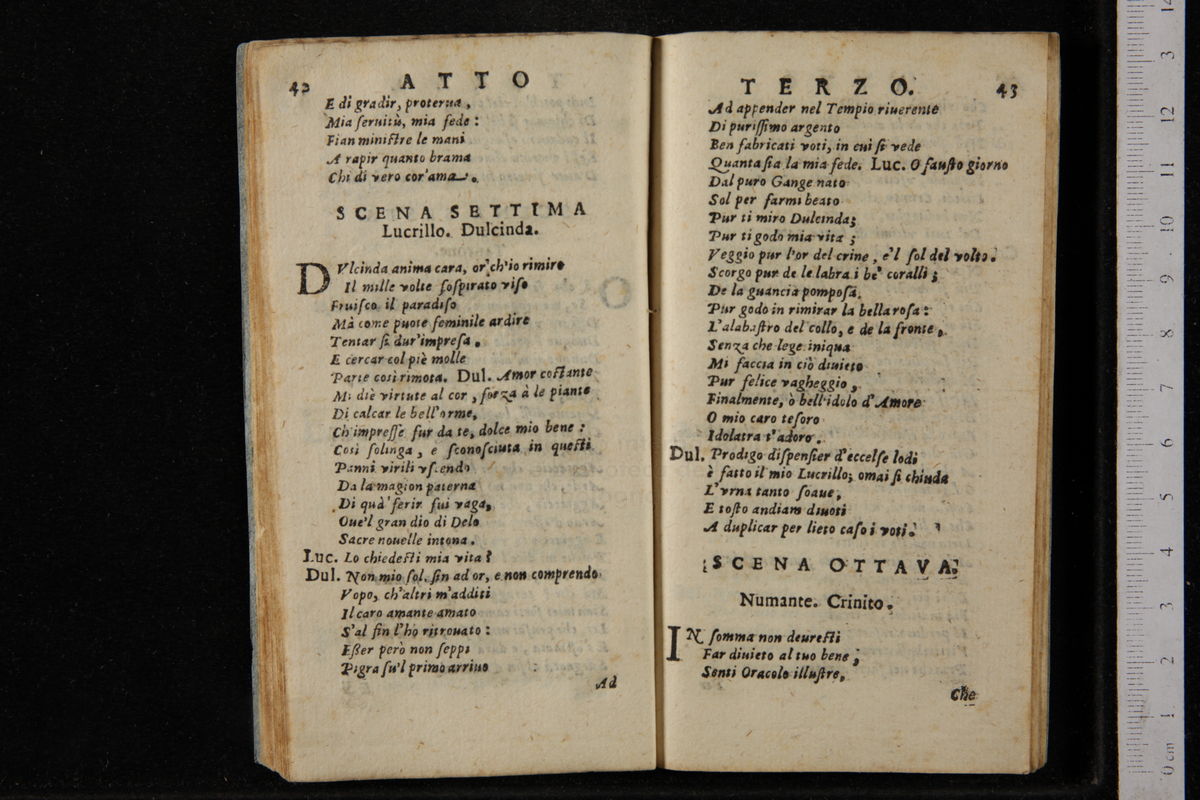 42 ATTO
E di gradir, proterua,
Mia seruitù, mia fede:
Fian ministre le mani
A rapir quanto brama
Chi di vero cor'ama.
SCENA SETTIMA
Lucrillo. Dulcinda.
DVlcinda anima cara, or'ch'io rimiro
Il mille volte sospirato viso
Fruisco il paradiso
Mà come puote feminile ardire
Tentar sì dur'impresa.
E cercar col piè molle
Parte così rimota. Dul. Amor costante
Mi diè virtute al cor, forza à le piante
Di calcar le bell'orme,
Ch'impresse fur da te, dolce mio bene:
Così solinga, e sconosciuta in questi
Panni virili vscendo
Da la magion paterna
Di quà'ferir fui vaga,
Oue'l gran dio di Delo
Sacre nouelle intona.
Luc. Lo chiedesti mia vita?
Dul. Non mio sol, fin ad or, e non comprendo
Vopo, ch'altri m'additi
Il caro amante amato
S'al fin l'hò ritrouato:
Esser però non seppi
Pigra su'l primo arriuo
Ad
TERZO. 43
Ad appender nel Tempio riuerente
Di purissimo argento
Ben fabricati voti, in cui si vede
Quanta sia la mia fede. Luc. O fausto giorno
Dal puro Gange nato
Sol per farmi beato
Pur ti miro Dulcinda;
Pur ti godo mia vita;
Veggio pur l'or del crine, e'l sol del volto.
Scorgo pur de le labra i be' coralli;
De la guancia pomposa,
Pur godo in rimirar la bella rosa:
L'alabastro del collo, e de la fronte,
Senza che lege iniqua
Mi faccia in ciò diuieto
Pur felice vagheggio,
Finalmente, ò bell'idolo d'Amore
O mio caro tesoro
Idolatra t'adoro.
Dul. Prodigo dispensier d'eccelse lodi
è fatto il mio Lucrillo; omai si chiuda
L'vrna tanto soaue,
E tosto andiam diuoti
A duplicar per lieto caso i voti.
SCENA OTTAVA.
Numante. Crinito.
IN somma non deuresti
Far diuieto al tuo bene;
Senti Oracolo illustre,
Che
0 cm 1 2 3 4 5 6 7 8 9 10 11 12 3 14